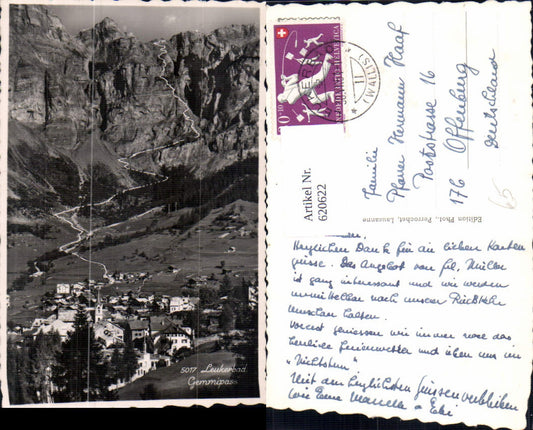 5017 Leukerbad
Gemmipass
Artikel Nr.
620622
HELVETICA
(WALLIS)
Familie
Pfarrer Hermann Haaf
Poststrasse 16
17b Offenburg
Deutschland
65
Edition Phot., Perrochet, Lausanne
Herzlichen Dank für die lieben Karten
grüsse. Das Angebot von Frl. Müller
ist ganz interessant und wir werden
unmittelbar nach unserer Rückkehr
Umschau halten.
Vorerst geniessen wir immer noch das
herrliche Ferienwetter und üben uns im
"Nichtstun"
Mit den herzlichsten Grüssen verbleiben
wie Eure Marcella &